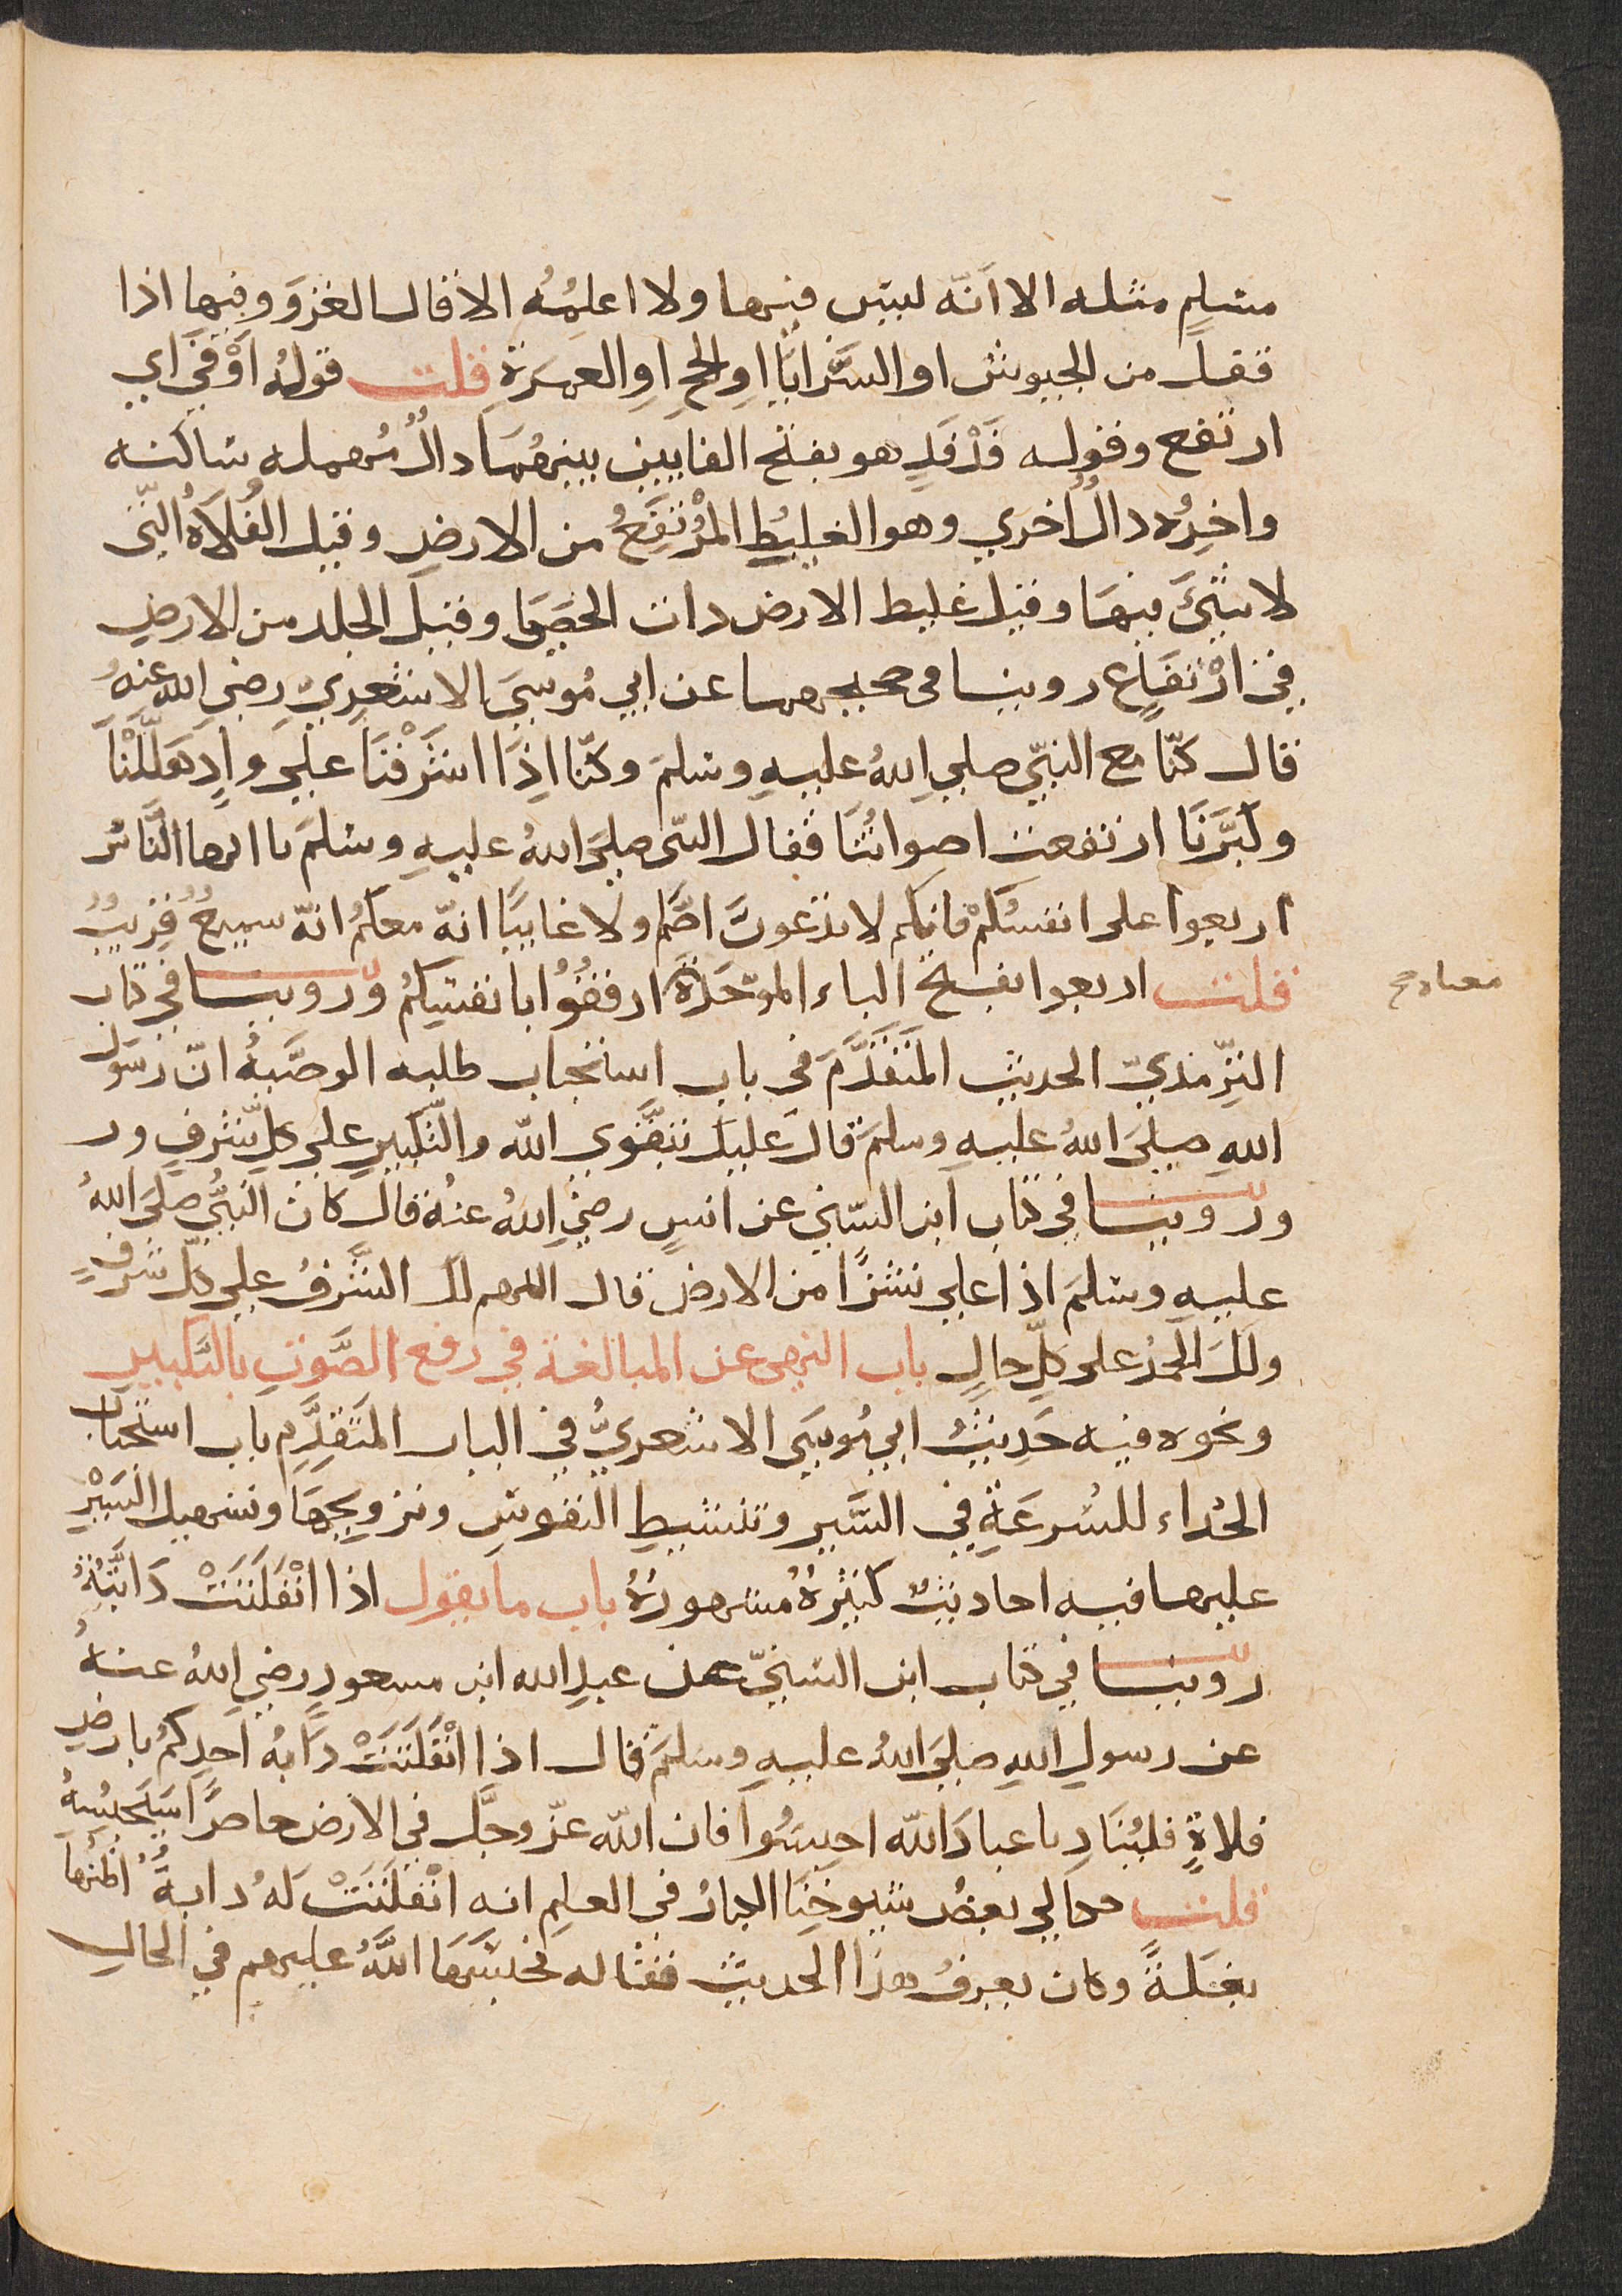 مسلم مثله الا انّه ليس فيها ولا اعلمُه الا قال الغزوَ وفيها اذا
قفل من الجيوش او السَّرايَا اوِ الحجِ اوِ العمرَةِ قلت قولُه اَوْفَيَ اي
ارتفع وقوله فَدْفَدٍ هو بفتح الفايين بينهُمَا دالُ مُهمله ساكنه
واخِرُه دالُ اُخري وهو الغليطُ المُرْتَفِعُ من الارضِ وقيل الفَلَاةُ التّي
لا شيَئَ فيهَا وقيل غليط الارض ذات الحصَي وقيل الجلد من الارضِ
في ارْتفَاعٍ روينا في صحيحيهما عن ابي مُوسيَ الاشعَرِيِّ رضيَ الله عنهُ
قال كنّا مع النبّيِ صليَ اللهُ عليهِ وسلمَ وكنّا اذَا اشرَفْنَا عليَ وادٍ هَلَّلْنَا
وكبَّرنَا ارتفعت اصواتُنَا فقال النبّى صليَ اللهُ عليهِ وسلمَ يا ايها النَّاسُ
اربعوا على انفسكمْ فانكم لا تدعونَ اصَّم ولا غايبًا انّه معكمُ انّه سميعُ قريبُ
قلت اربعوا بفتح الباء الموحّدَة ارفُقُوا بانفسكمُ وروينا في كتاب
معناه
الترِّمذيّ الحديثِ المتَقدَّمَ في باب استحباب طلبه الوصَّيةُ انّ رسوَل
اللهِ صليَ اللهُ عليهِ وسلمَ قال عليكَ بتقَوي الله والتّكبيرِ علي كلِّ شرفٍ ور
وروينا في كتاب ابن السّني عن انسٍ رضيَ اللهُ عنهُ قال كان النبُّي صليَ اللهُ
عليهِ وسلمَ اذا علي نشزًا من الارضِ قال اللهم لك الشَّرفُ علي كلّ شرفٍ
ولكَ الحمدُ على كلِّ حالٍ باب النهى عن المبالغة في رفع الصَّوتِ بالتكبيرِ
ونحوه فيه حَديثُ ابي مُوسَي الاشعريُّ في الباب المتَقدِّمِ باب استحباب
الحُداء للسُرعَةِ في السَّير وتنشيطِ النفوسِ وترويجهَا وتسهيل السَيْرِ
عليها فيه احاديثُ كثيرةُ مشهورةُ باب ما يقول اذا انْفَلَتَتْ دَابَّتُهُ
روينا في كتاب ابن السنيّ عن عبدِ الله ابن مسعودٍ رضيَ اللهُ عنهُ
عن رسولِ اللهِ صليَ اللهُ عليهِ وسلمَ قال اذا انْفَلَتَتْ دَابةُ احدِكمُ بارضِ
فلاةٍ فليُنَادِ يا عبادَ الله احبسُوا فان الله عزّ وجلَّ في الارض حاصرًا سَيَحبِسُهُ
قلت حكا لي بعضُ شيوخِنَا الكبارُ في العلمِ انه انْفلَتَتْ لَهُ دابةُ اظنُها
بغَلةً وكان يعرفُ هذا الحديث فقاله فحبَسَهَا اللهُ عليهم في الحالِ